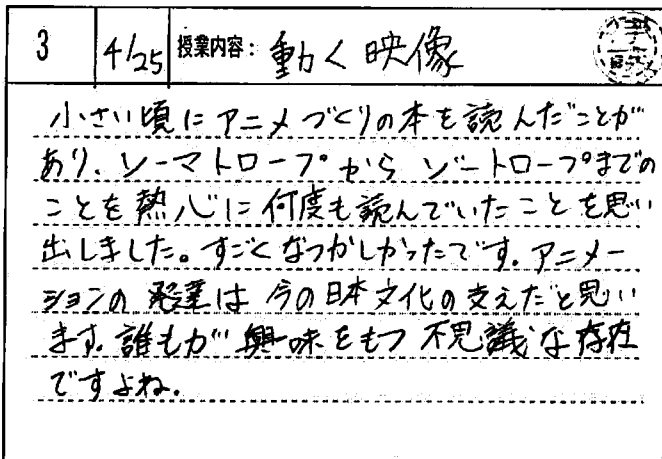 3
4/25
授業内容: 動く映像
小さい頃にアニメづくりの本を読んだことが
あり、ソーマトロープからゾートロープまでの
ことを熱心に何度も読んでいたことを思い
出しました。すごくなつかしかったです。アニメー
ションの発達は今の日本文化の支えだと思い
ます。誰もが興味をもつ不思議な存在
ですよね。